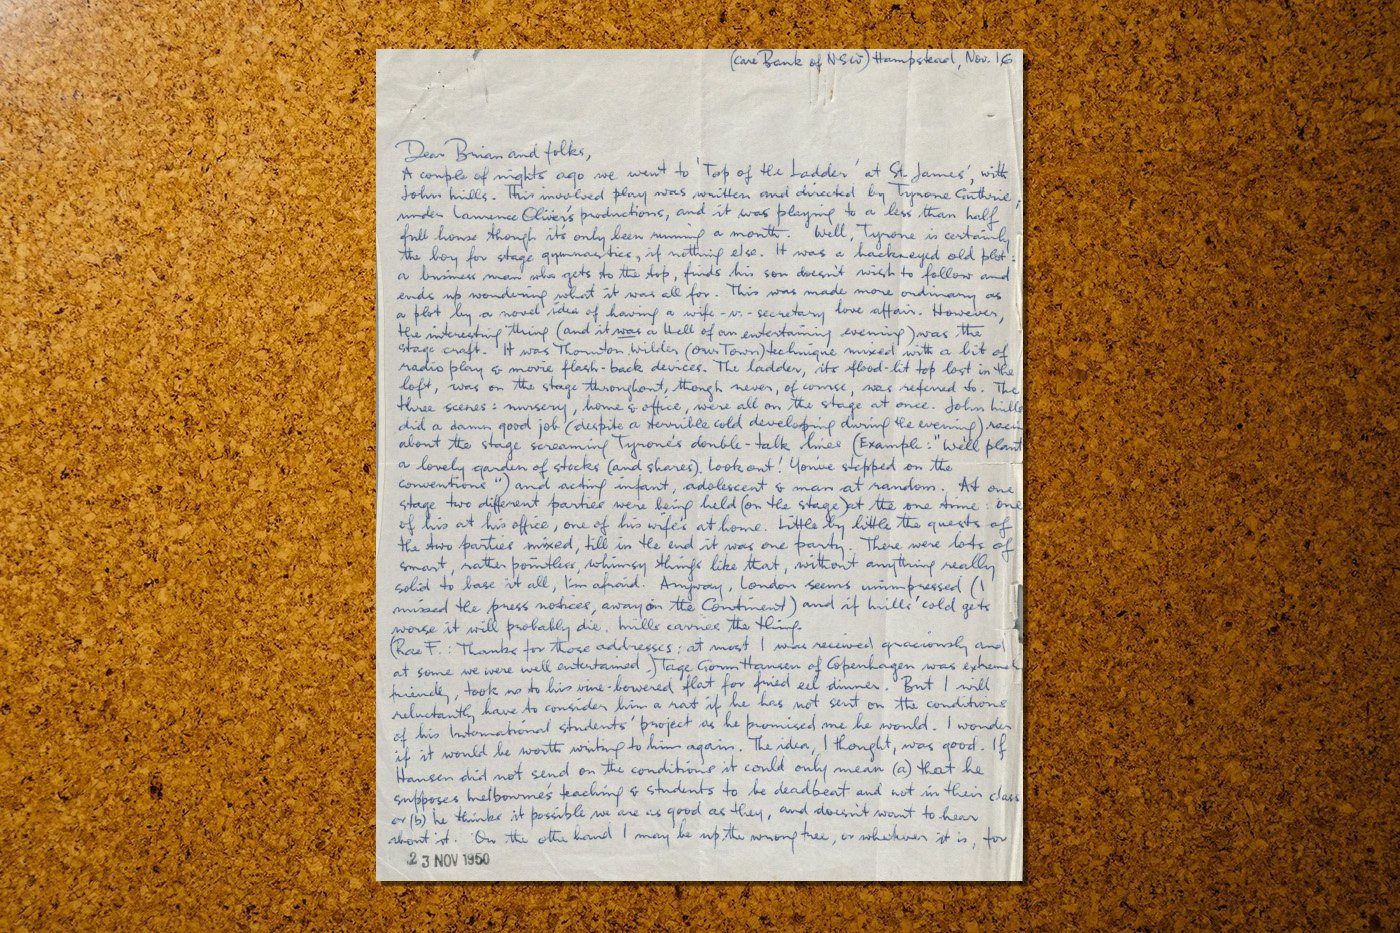 (care Bank of NSW) Hampstead, Nov. 16
Dear Brian and folks,
A couple of nights ago we went to 'Top of the Ladder' at St. James', with
John Mills. This involved play was written and directed by Tyrone Guthrie,
under Laurence Olivier's productions, and it was playing to a less than half
full house though it's only been running a month. Well, Tyrone is certainly
the boy for stage gymnastics, if nothing else. It was a hackneyed old plot:
a business man who gets to the top, finds his son doesn't wish to follow and
ends up wondering what it was all for. This was made more ordinary as
a plot by a novel idea of having a wife-v.-secretary love affair. However,
the interesting thing (and it was a hell of an entertaining evening) was the
stage craft. It was Thornton Wilder (Our Town) technique mixed with a bit of
radio play & movie flash-back devices. The ladder, its flood-lit top lost in the
loft, was on the stage throughout, though never, of course, was referred to. The
three scenes: nursery, home & office, were all on the stage at once. John Mills
did a damn good job (despite a terrible cold developing during the evening) racin
about the stage screaming Tyrone's double-talk lines (Example: "We'll plant
a lovely garden of stocks (and shares). Look out! You've stepped on the
conventions") and acting infant, adolescent & man at random. At one
stage two different parties were being held (on the stage) at the one time: one
of his at his office, one of his wife's at home. Little by little the guests of
the two parties mixed, till in the end it was one party. There were lots of
smart, rather pointless, whimsy things like that, without anything really
solid to base it all, I'm afraid! Anyway, London seems unimpressed (I
missed the press notices, away on the Continent) and if Mills' cold gets
worse it will probably die. Mills carries the thing.
(Rae F.: Thanks for those addresses: at most I was received graciously and
at some we were well entertained.) Tage Gorm Hansen of Copenhagen was extreme
friendly, took us to his vine-bowered flat for fried eel dinner. But I will
reluctantly have to consider him a rat if he has not sent on the conditions
of his International students' project as he promised me he would. I wonder
if it would be worth writing to him again. The idea, I thought, was good. If
Hansen did not send on the conditions it could only mean (a) that he
supposes Melbourne's teaching & students to be deadbeat and not in their class
or (b) he thinks it possible we are as good as they, and doesn't want to hear
about it. On the other hand I may be up the wrong tree, or whatever it is, for
23 NOV 1950